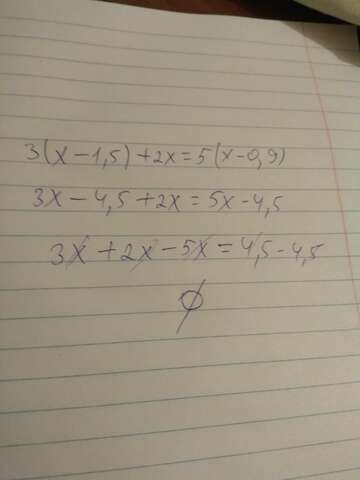 3(x-1,5)+2x=5(x-0,9)
3x-4,5+2x=5x-4,5
3x+2x-5x=4,5-4,5
∅